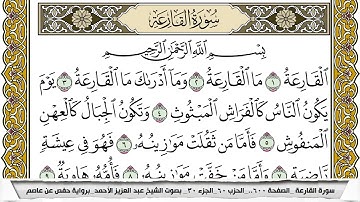 سُورَةُ القَارِعَةِ
بِسْمِ اللَّهِ الرَّحْمَٰنِ الرَّحِيمِ
الْقَارِعَةُ ١ مَا الْقَارِعَةُ ٢ وَمَا أَدْرَىٰكَ مَا الْقَارِعَةُ ٣ يَوْمَ
يَكُونُ النَّاسُ كَالْفَرَاشِ الْمَبْثُوثِ ٤ وَتَكُونُ الْجِبَالُ كَالْعِهْنِ
الْمَنفُوشِ ٥ فَأَمَّا مَن ثَقُلَتْ مَوَٰزِينُهُۥ ٦ فَهُوَ فِي عِيشَةٍ
رَّاضِيَةٍ ٧ وَأَمَّا مَنْ خَفَّتْ مَوَٰزِينُهُۥ ٨ فَأُمُّهُۥ هَاوِيَةٌ ٩
سورة القارعة _الصفحة ٦٠٠_ الحزب ٦٠_الجزء ٣٠_ بصوت الشيخ عبد العزيز الأحمد_برواية حفص عن عاصم